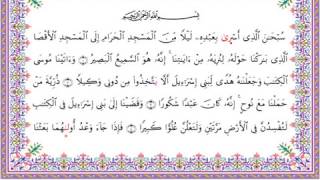 بِسْمِ اللَّهِ الرَّحْمَٰنِ الرَّحِيمِ
سُبْحَٰنَ ٱلَّذِىٓ أَسْرَىٰ بِعَبْدِهِۦ لَيْلًا مِّنَ ٱلْمَسْجِدِ ٱلْحَرَامِ إِلَى ٱلْمَسْجِدِ ٱلْأَقْصَا
ٱلَّذِى بَٰرَكْنَا حَوْلَهُۥ لِنُرِيَهُۥ مِنْ ءَايَٰتِنَآ ۚ إِنَّهُۥ هُوَ ٱلسَّمِيعُ ٱلْبَصِيرُ ۝ وَءَاتَيْنَا مُوسَى
ٱلْكِتَٰبَ وَجَعَلْنَٰهُ هُدًى لِّبَنِىٓ إِسْرَٰٓءِيلَ أَلَّا تَتَّخِذُوا۟ مِن دُونِى وَكِيلًا ۝ ذُرِّيَّةَ مَنْ
حَمَلْنَا مَعَ نُوحٍ ۚ إِنَّهُۥ كَانَ عَبْدًا شَكُورًا ۝ وَقَضَيْنَآ إِلَىٰ بَنِىٓ إِسْرَٰٓءِيلَ فِى ٱلْكِتَٰبِ
لَتُفْسِدُنَّ فِى ٱلْأَرْضِ مَرَّتَيْنِ وَلَتَعْلُنَّ عُلُوًّا كَبِيرًا ۝ فَإِذَا جَآءَ وَعْدُ أُولَىٰهُمَا بَعَثْنَا